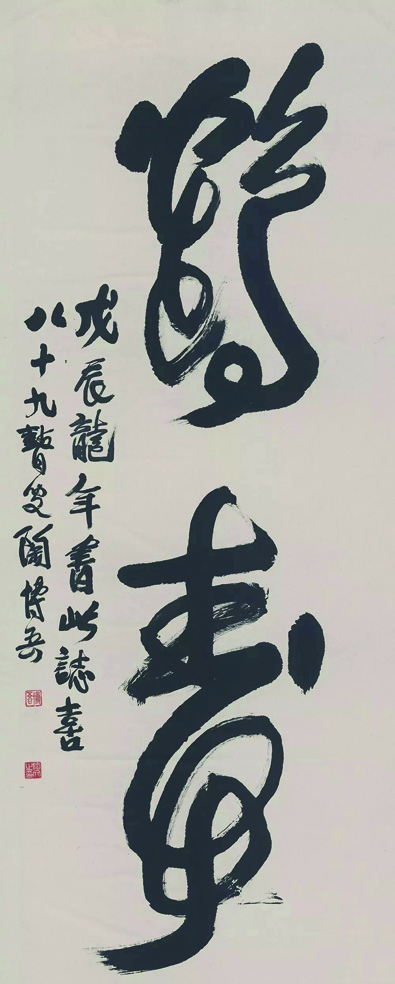 鶴壽
戊辰龍年書此誌喜
八十九瞽叟陶博吾